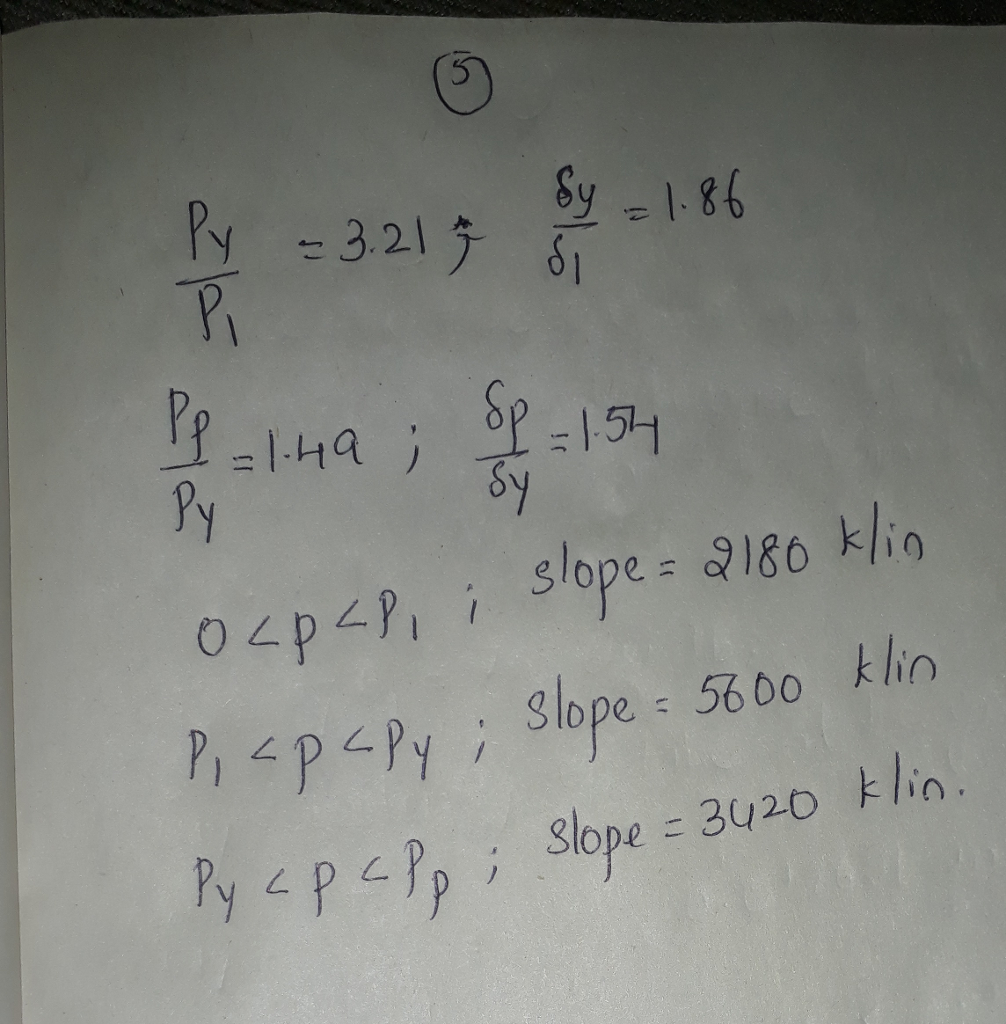 5
Py/P1 = 3.21 ; δy/δ1 = 1.86
Pp/Py = 1.49 ; δp/δy = 1.54
0 < p < P1 ; slope = 2180 k/in
P1 < p < Py ; slope = 5600 k/in
Py < p < Pp ; slope = 3420 k/in.